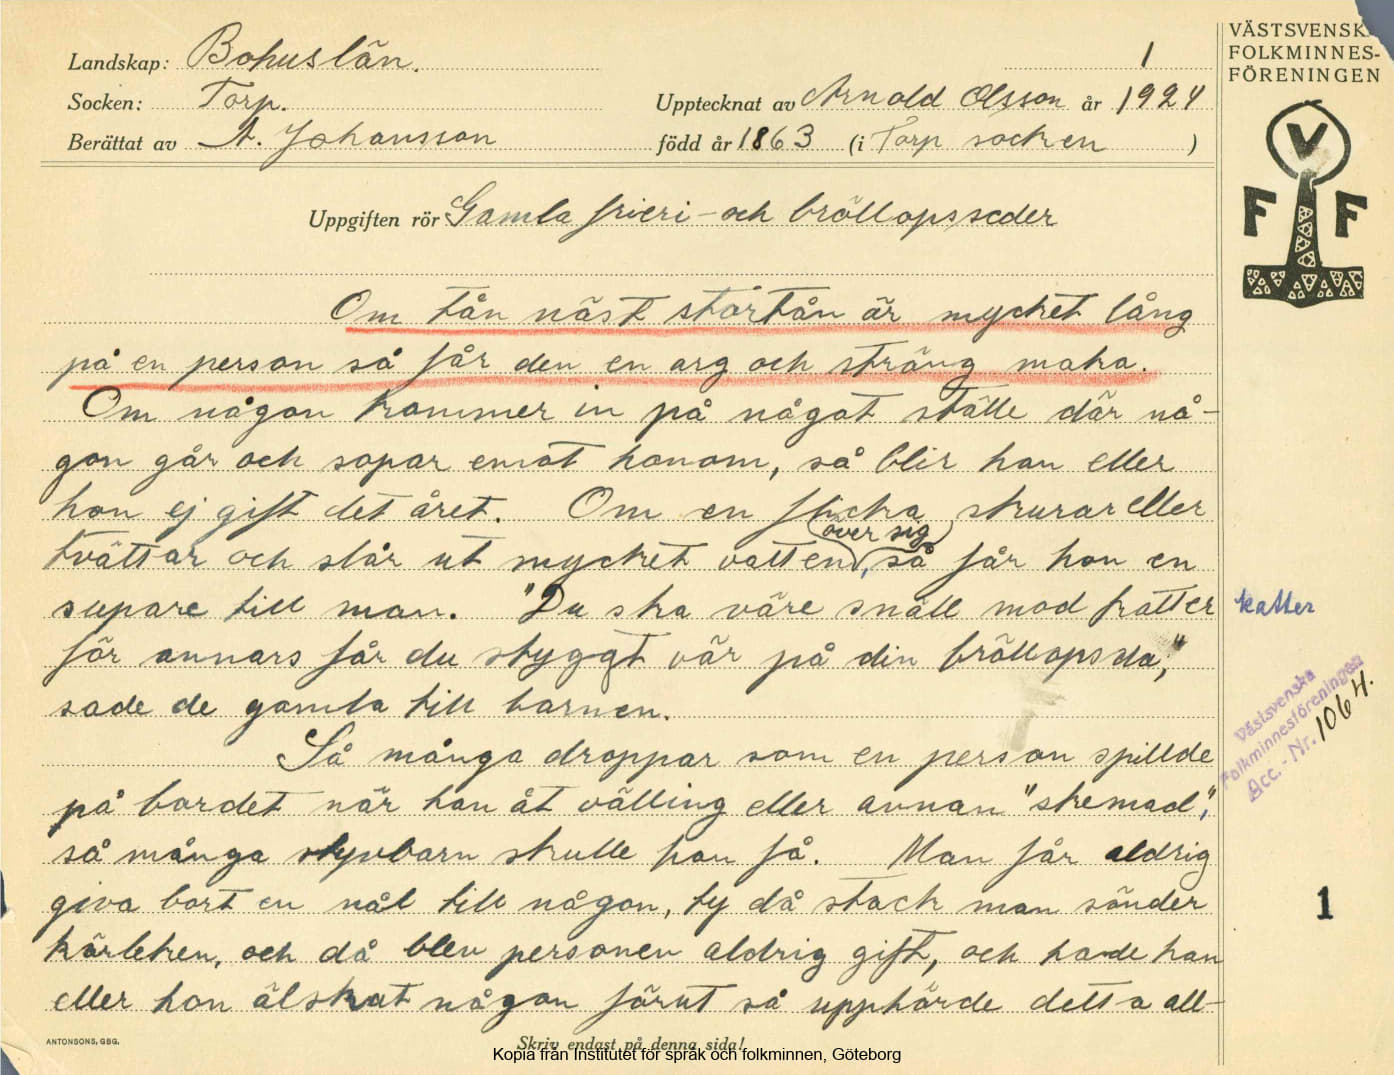 Landskap: Bohuslän.
1
Socken: Torp.
Upptecknat av Arnold Olsson år 1924
Berättat av A. Johansson
född år 1863 (i Torp socken )
VÄSTSVENSKA
FOLKMINNES-
FÖRENINGEN
V
F F
Uppgiften rör Gamla frieri- och bröllopsseder
Om tån näst stortån är mycket lång
på en person så får den en arg och sträng maka.
Om någon kommer in på något ställe där nå-
gon går och sopar emot honom, så blir han eller
hon ej gift det året. Om en flicka skurar eller
(över sig)
tvättar och slår ut mycket vatten, så får hon en
supare till man. "Du ska väre snäll mod katter
för annars får du styggt vär på din bröllopsda,"
sade de gamla till barnen.
katter
Västsvenska
Folkminnesföreningen
Acc.-Nr. 1064.
Så många droppar som en person spillde
på bordet när han åt välling eller annan "skemad",
så många styvbarn skulle han få. Man får aldrig
giva bort en nål till någon, ty då stack man sönder
kärleken, och då blev personen aldrig gift, och hade han
eller hon älskat någon förut så upphörde detta all-
1
ANTONSONS, GBG.
Skriv endast på denna sida!
Kopia från Institutet för språk och folkminnen, Göteborg